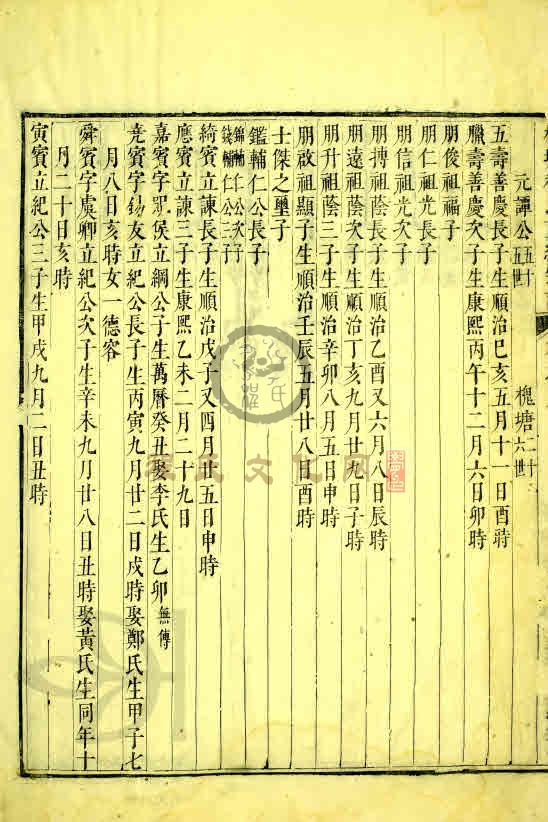 元譚公五十五世 槐塘二十六世
五壽善慶長子生順治己亥五月十一日酉時
臘壽善慶次子生康熙丙午十二月六日卯時
朋俊祖福子
朋仁祖光長子
朋信祖光次子
朋摶祖蔭長子生順治乙酉又六月八日辰時
朋遠祖蔭次子生順治丁亥九月廿九日子時
朋升祖蔭三子生順治辛卯八月五日申時
朋啟祖顯子生順治壬辰五月廿八日酉時
士傑之璽子
鑑輔仁公長子
錦輔仁公次子
錢輔仁公三子
綺賓立諫長子生順治戊子又四月廿五日申時
應賓立諫三子生康熙乙未二月二十九日
嘉賓字 侯立綱公子生萬曆癸丑娶李氏生乙卯無傳
堯賓字錫友立紀公長子生丙寅九月廿二日戌時娶鄭氏生甲子七
月八日亥時女一德容
舜賓字虞卿立紀公次子生辛未九月廿八日丑時娶黃氏生同年十
月二十日亥時
寅賓立紀公三子生甲戌九月二日丑時